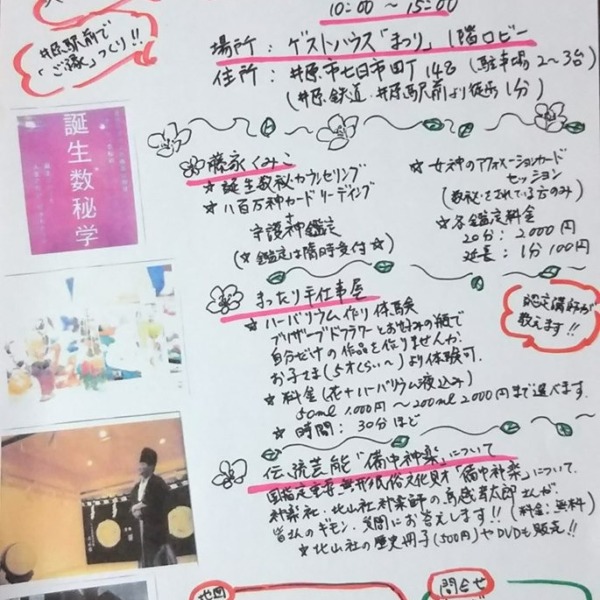 10:00 ～ 15:00
場所 : ゲストハウス「まつり」1階ロビー
住所 : 井原市七日市町148 (駐車場2～3台)
(井原鉄道・井原駅前より徒歩1分)
井原駅前で
「ご縁」つくり!!
誕生数秘学
藤家くみこ
☆ 誕生数秘カウンセリング
☆ 八百万神カードリーディング
+
守護神鑑定
(☆ 鑑定は随時受付 ☆)
☆ 女神のアファメーションカード
セッション
(数秘をされている方のみ)
☆ 各鑑定料金
20分 : 2000円
延長 : 1分 100円
まったり手仕事屋
☆ ハーバリウム作り体験
プリザーブドフラワーとお好みの瓶で
自分だけの作品を作りませんか
お子さま(5才くらい～)より体験可.
☆ 料金(花+ハーバリウム液込み)
50ml 1,000円～200ml 2000円まで選べます.
☆ 時間 : 30分ほど
認定講師が
教えます!!
伝統芸能"備中神楽"について
国指定重要無形民俗文化財「備中神楽」について.
神楽社・北山社神楽師の
皆さんのギモン・質問にお答えします!! (料金:無料)
☆ 北山社の歴史冊子(500円)やDVDも販売!!
地図
問合せ